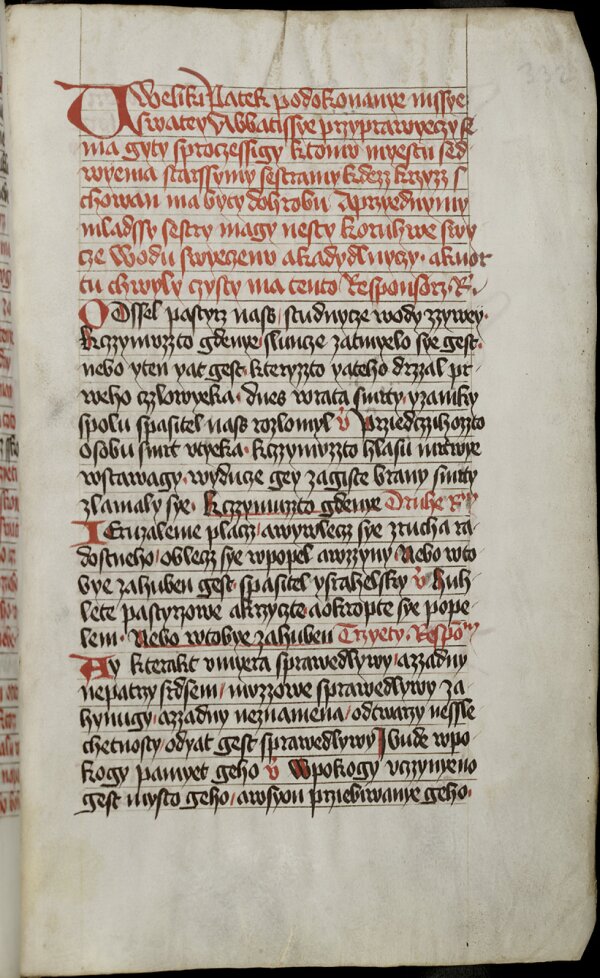 Uweliki Patek podokonanye mssye
swatey Abbatissye przyprawyeczy se
ma gyty sproczessigy ktomu myestu sed
wyema starssyma sestrama kdezz krzyzz s
chowan ma byty dohrobu Aprzednymy
mladssy sestry magy nesty koruhwe swy
cze wodu swyczenu akadydlnyczy · akuor
tu chwyly czysty ma tento Responsorz · R ·
Odssel pastyrz nass studnycze wody zzywey ·
kczymuzzto gdenye sluncze zatmyelo sye gest ·
nebo yten yat gest · kteryzzto yateho drzzal pr
weho czlowyeka · dnes wrata smrty yzamky
spolu spasitel nass rozlomyl V Prziedczihozzto
osobu smrt vtyeka · kczymuzzto hlasu mrtwye
wstawagy · wyducze gey zagiste brany smrty
zlamaly sye · kczymuzzto gdenye Druhe R
Ieruzaleme placz / azwlecz sye zrucha ra
dostneho · oblecz sye wpopel awzzyny · Nebo wto
bye zahuben gest · spasitel ysrahelsky V Kuh
lete pastyrzowe akrzyczte · aokropte sye pope
lem · Nebo wtobye zahuben Trzyety · Respo
Ay kterakt vmyera sprawedlywy · azzadny
nepatrzy srdsem / muzzowe sprawedlywy za
hynugy · azzadny neznamena / odtwarzy nessle
chetnosty · odyat gest sprawedlywy Ibude wpo
kogy pamyet geho V Wpokogy vczynyeno
gest mysto geho / awsyon prziebywanye geho ·